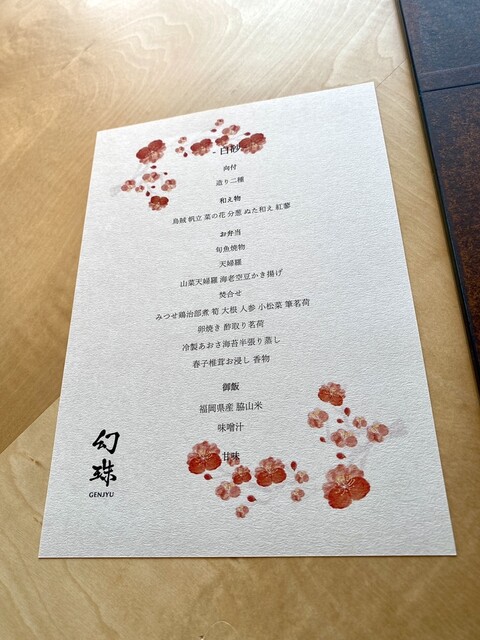 - 白砂 -
向付
造り二種
和え物
烏賊 帆立 菜の花 分葱 ぬた和え 紅蓼
お弁当
旬魚焼物
天婦羅
山菜天婦羅 海老空豆かき揚げ
焚合せ
みつせ鶏治部煮 筍 大根 人参 小松菜 筆茗荷
卵焼き 酢取り茗荷
冷製あおさ海苔半張り蒸し
春子椎茸お浸し 香物
御飯
福岡県産 脇山米
味噌汁
甘味
幻珠
GENJYU